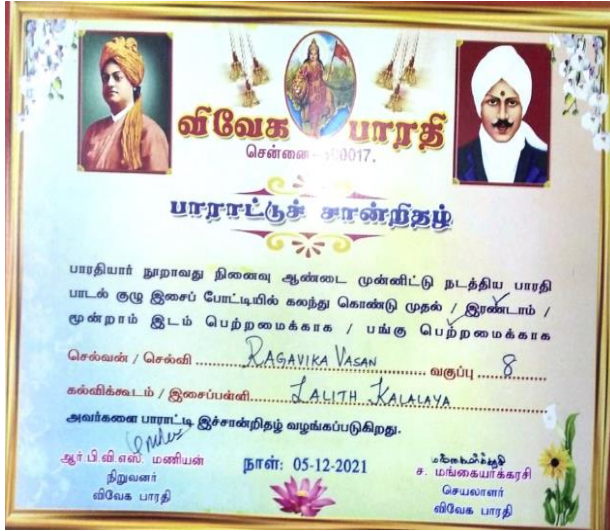 விவேக பாரதி
சென்னை-600017.
பாராட்டுச் சான்றிதழ்
பாரதியார் நூறாவது நினைவு ஆண்டை முன்னிட்டு நடத்திய பாரதி
பாடல் குழு இசைப் போட்டியில் கலந்து கொண்டு முதல் / இரண்டாம் /
மூன்றாம் இடம் பெற்றமைக்காக / பங்கு பெற்றமைக்காக
செல்வன் / செல்வி RAGAVIKA VASAN வகுப்பு 8
கல்விக்கூடம் / இசைப்பள்ளி LALITH KALALAYA
அவர்களை பாராட்டி இச்சான்றிதழ் வழங்கப்படுகிறது.
ஆர்.பி.வி.எஸ். மணியன் நாள்: 05-12-2021 ச. மங்கையர்க்கரசி
நிறுவனர் செயலாளர்
விவேக பாரதி விவேக பாரதி